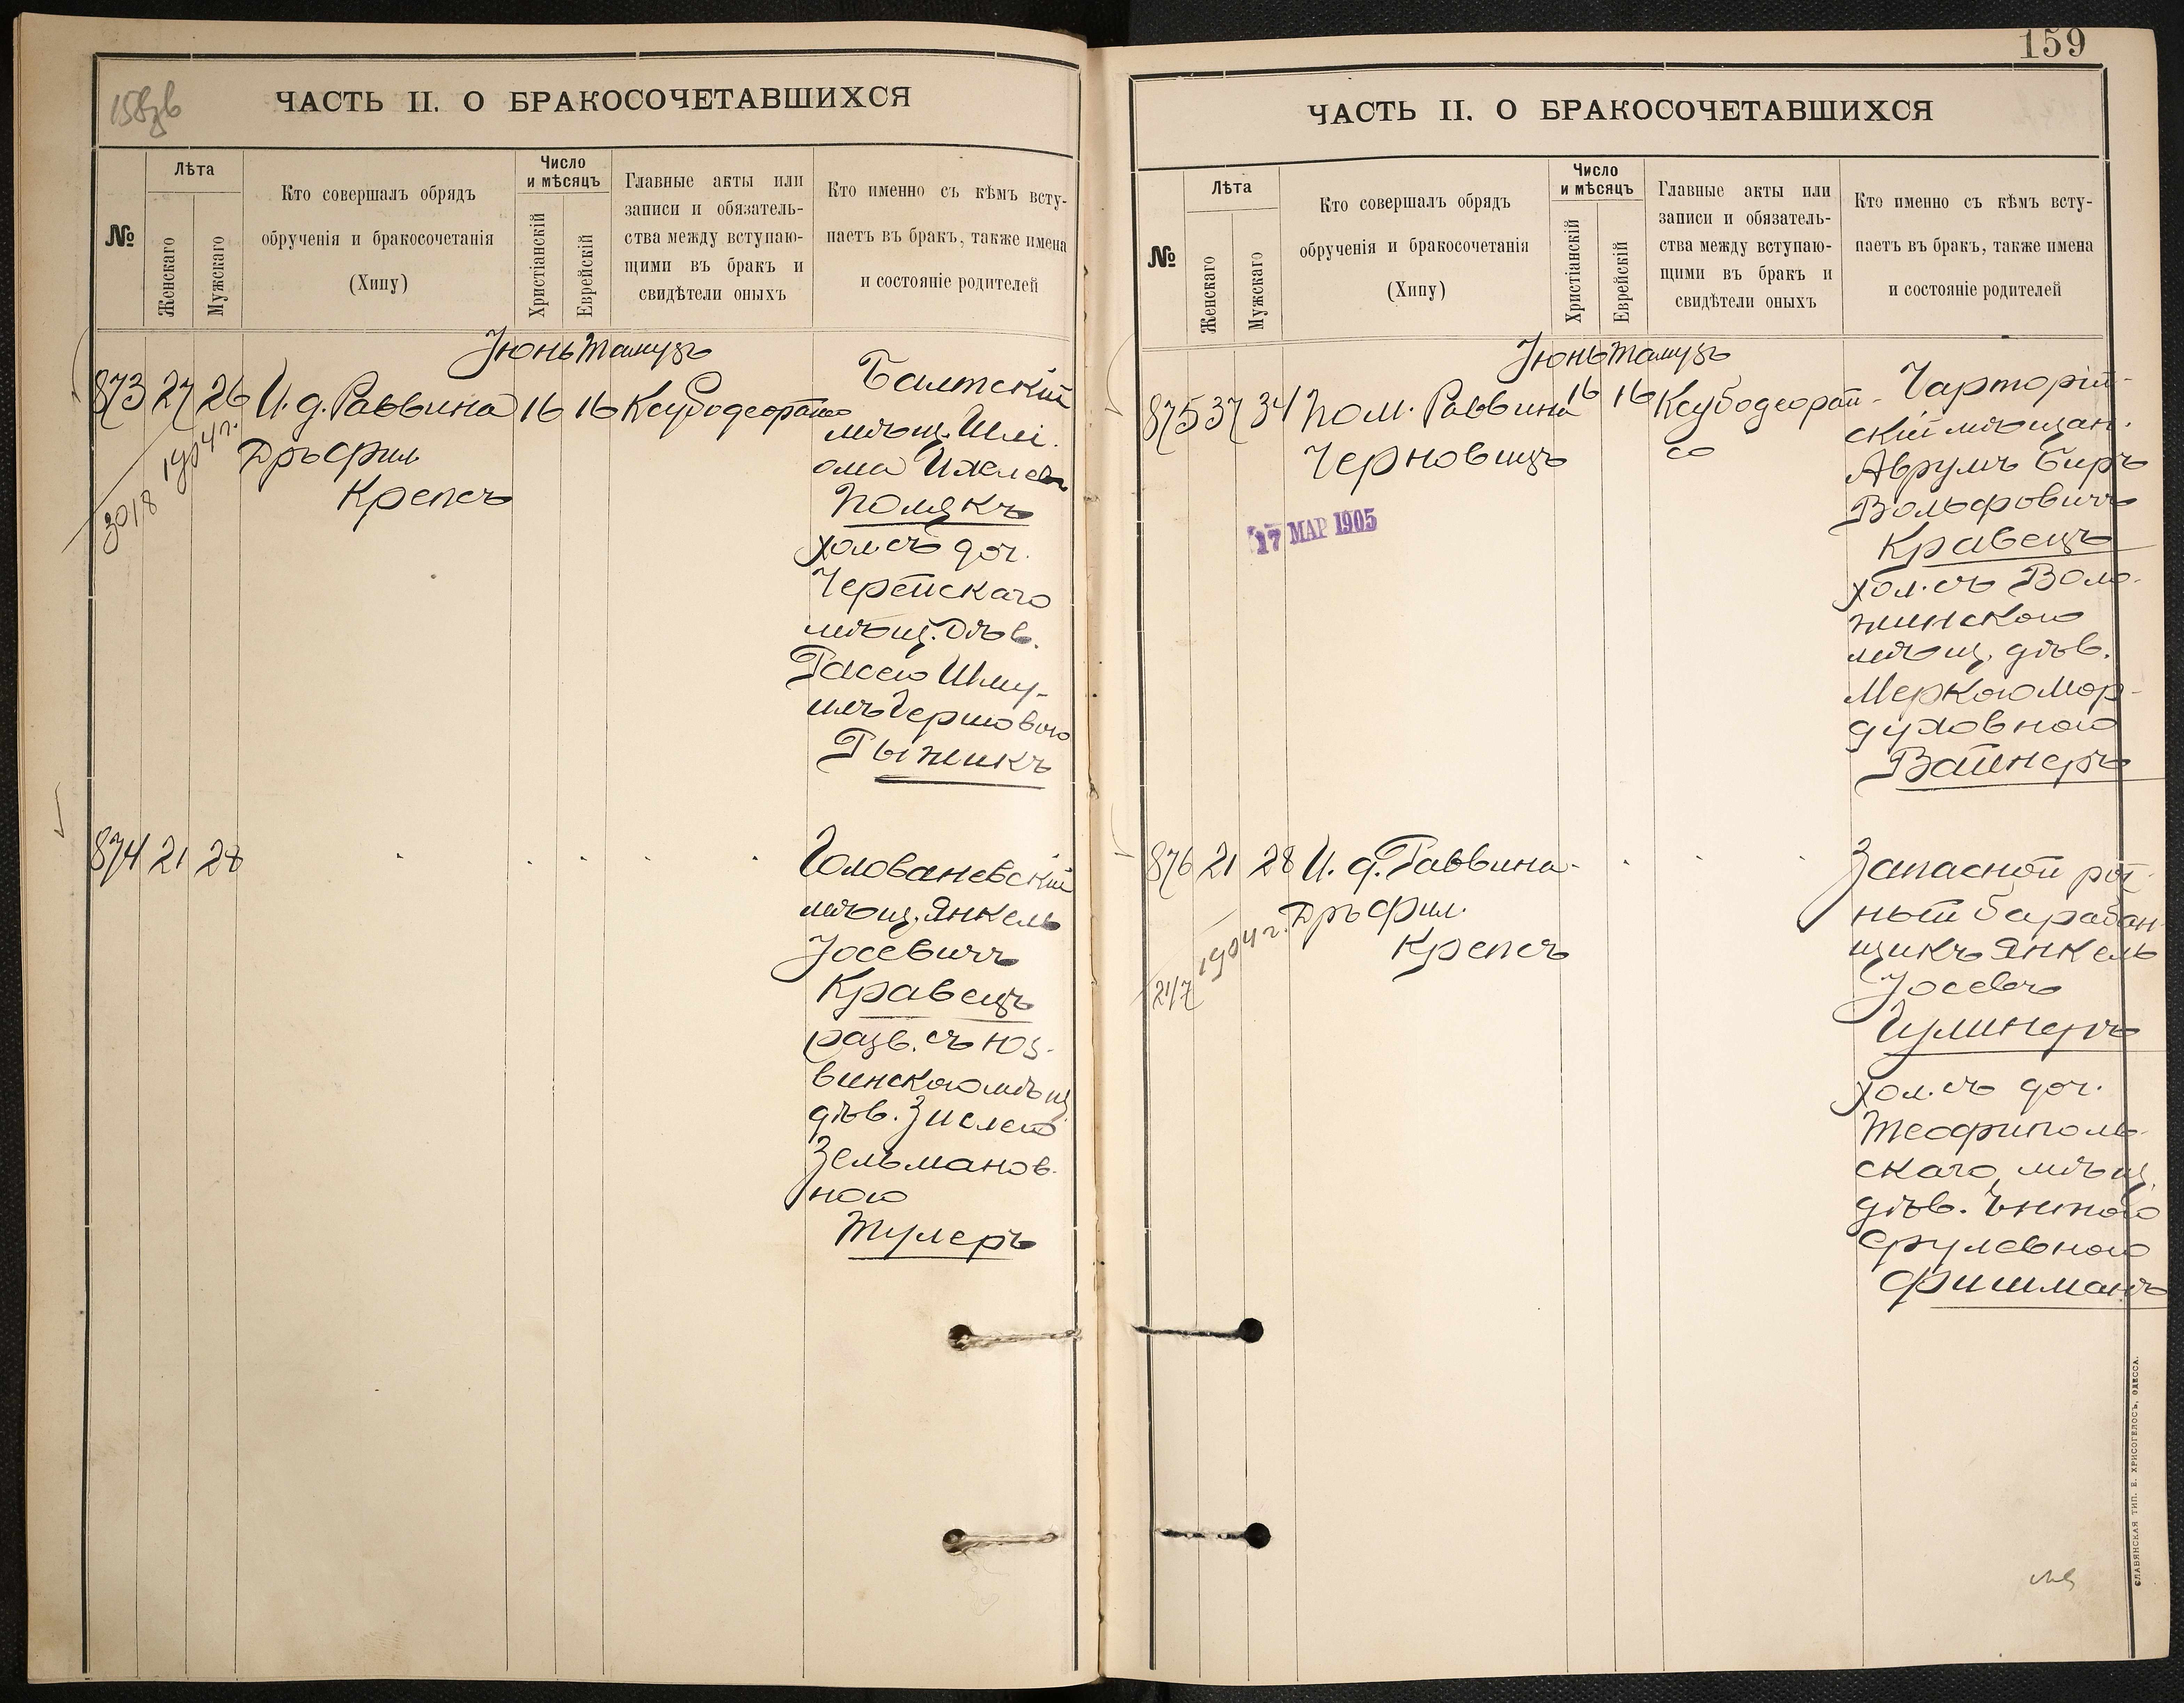 158зв
ЧАСТЬ II. О БРАКОСОЧЕТАВШИХСЯ
№
Лѣта
Женскаго
Мужскаго
Кто совершалъ обрядъ
обрученія и бракосочетанія
(Хипу)
Число
и мѣсяцъ
Христіанскій
Еврейскій
Главные акты или
записи и обязатель-
ства между вступаю-
щими въ бракъ и
свидѣтели оныхъ
Кто именно съ кѣмъ всту-
паетъ въ бракъ, также имена
и состояніе родителей
Іюнь Тамузъ
873 27 26 И. д. Раввина 16 16
Дръ Фил.
Крепсъ
1904 г.
30/8
Балтскій
мѣщ. Шлі-
ома
Полякъ
хол. съ доч.
Черейскаго
мѣщ. дѣв.
Рысею Шму-
илъ Гершовою
Рыжикъ
874 21 28
Голованевскій
мѣщ. Янкель
Іосевичъ
Кравецъ
разв. съ Юз-
винскою мѣщ.
дѣв. Зислею
Зельманов-
ною
Тулеръ
159
ЧАСТЬ II. О БРАКОСОЧЕТАВШИХСЯ
№
Лѣта
Женскаго
Мужскаго
Кто совершалъ обрядъ
обрученія и бракосочетанія
(Хипу)
Число
и мѣсяцъ
Христіанскій
Еврейскій
Главные акты или
записи и обязатель-
ства между вступаю-
щими въ бракъ и
свидѣтели оныхъ
Кто именно съ кѣмъ всту-
паетъ въ бракъ, также имена
и состояніе родителей
Іюнь Тамузъ
875 37 34 Пом. Раввина 16 16 Ксубодеорай-
Черновицъ
со
17 МАР 1905
Чарторій-
скій мѣщан.
Аврумъ Беръ
Вольфовичъ
Кравецъ
хол. съ Воло-
жинскою
мѣщ. дѣв.
Меркою Мор-
духовною
Вайнеръ
876 21 28 И. д. Раввина
Дръ Фил.
Крепсъ
1904 г.
21/7
Запасной рот-
ный барабан-
щикъ Янкель
Іосевъ
Гулинеръ
хол. съ доч.
Теофиполь-
скаго мѣщ.
дѣв.
Срулевною
Фишманъ
СЛАВЯНСКАЯ ТИП. Е. ХРИСОГЕЛОСЪ, ОДЕССА.